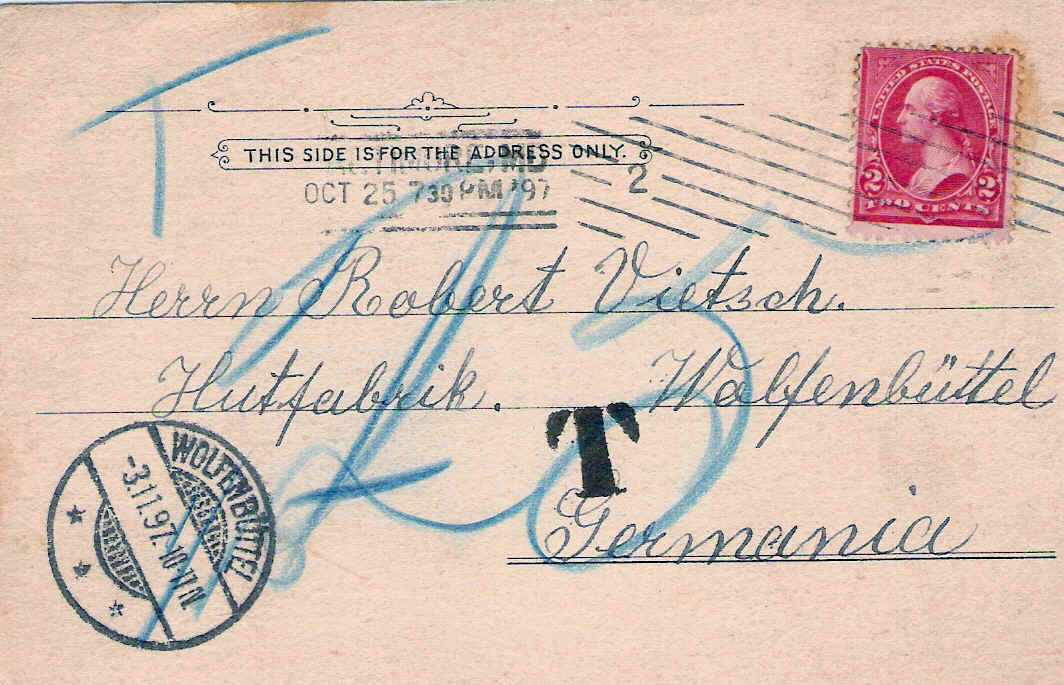 THIS SIDE IS FOR THE ADDRESS ONLY.
OCT 25 730 PM '97
2
UNITED STATES POSTAGE
2 2
TWO CENTS
T
25
Herrn Robert Vietsch.
Hutfabrik. Wolfenbüttel
T
Germania
WOLFENBÜTTEL
-3.11.97.10-11N.